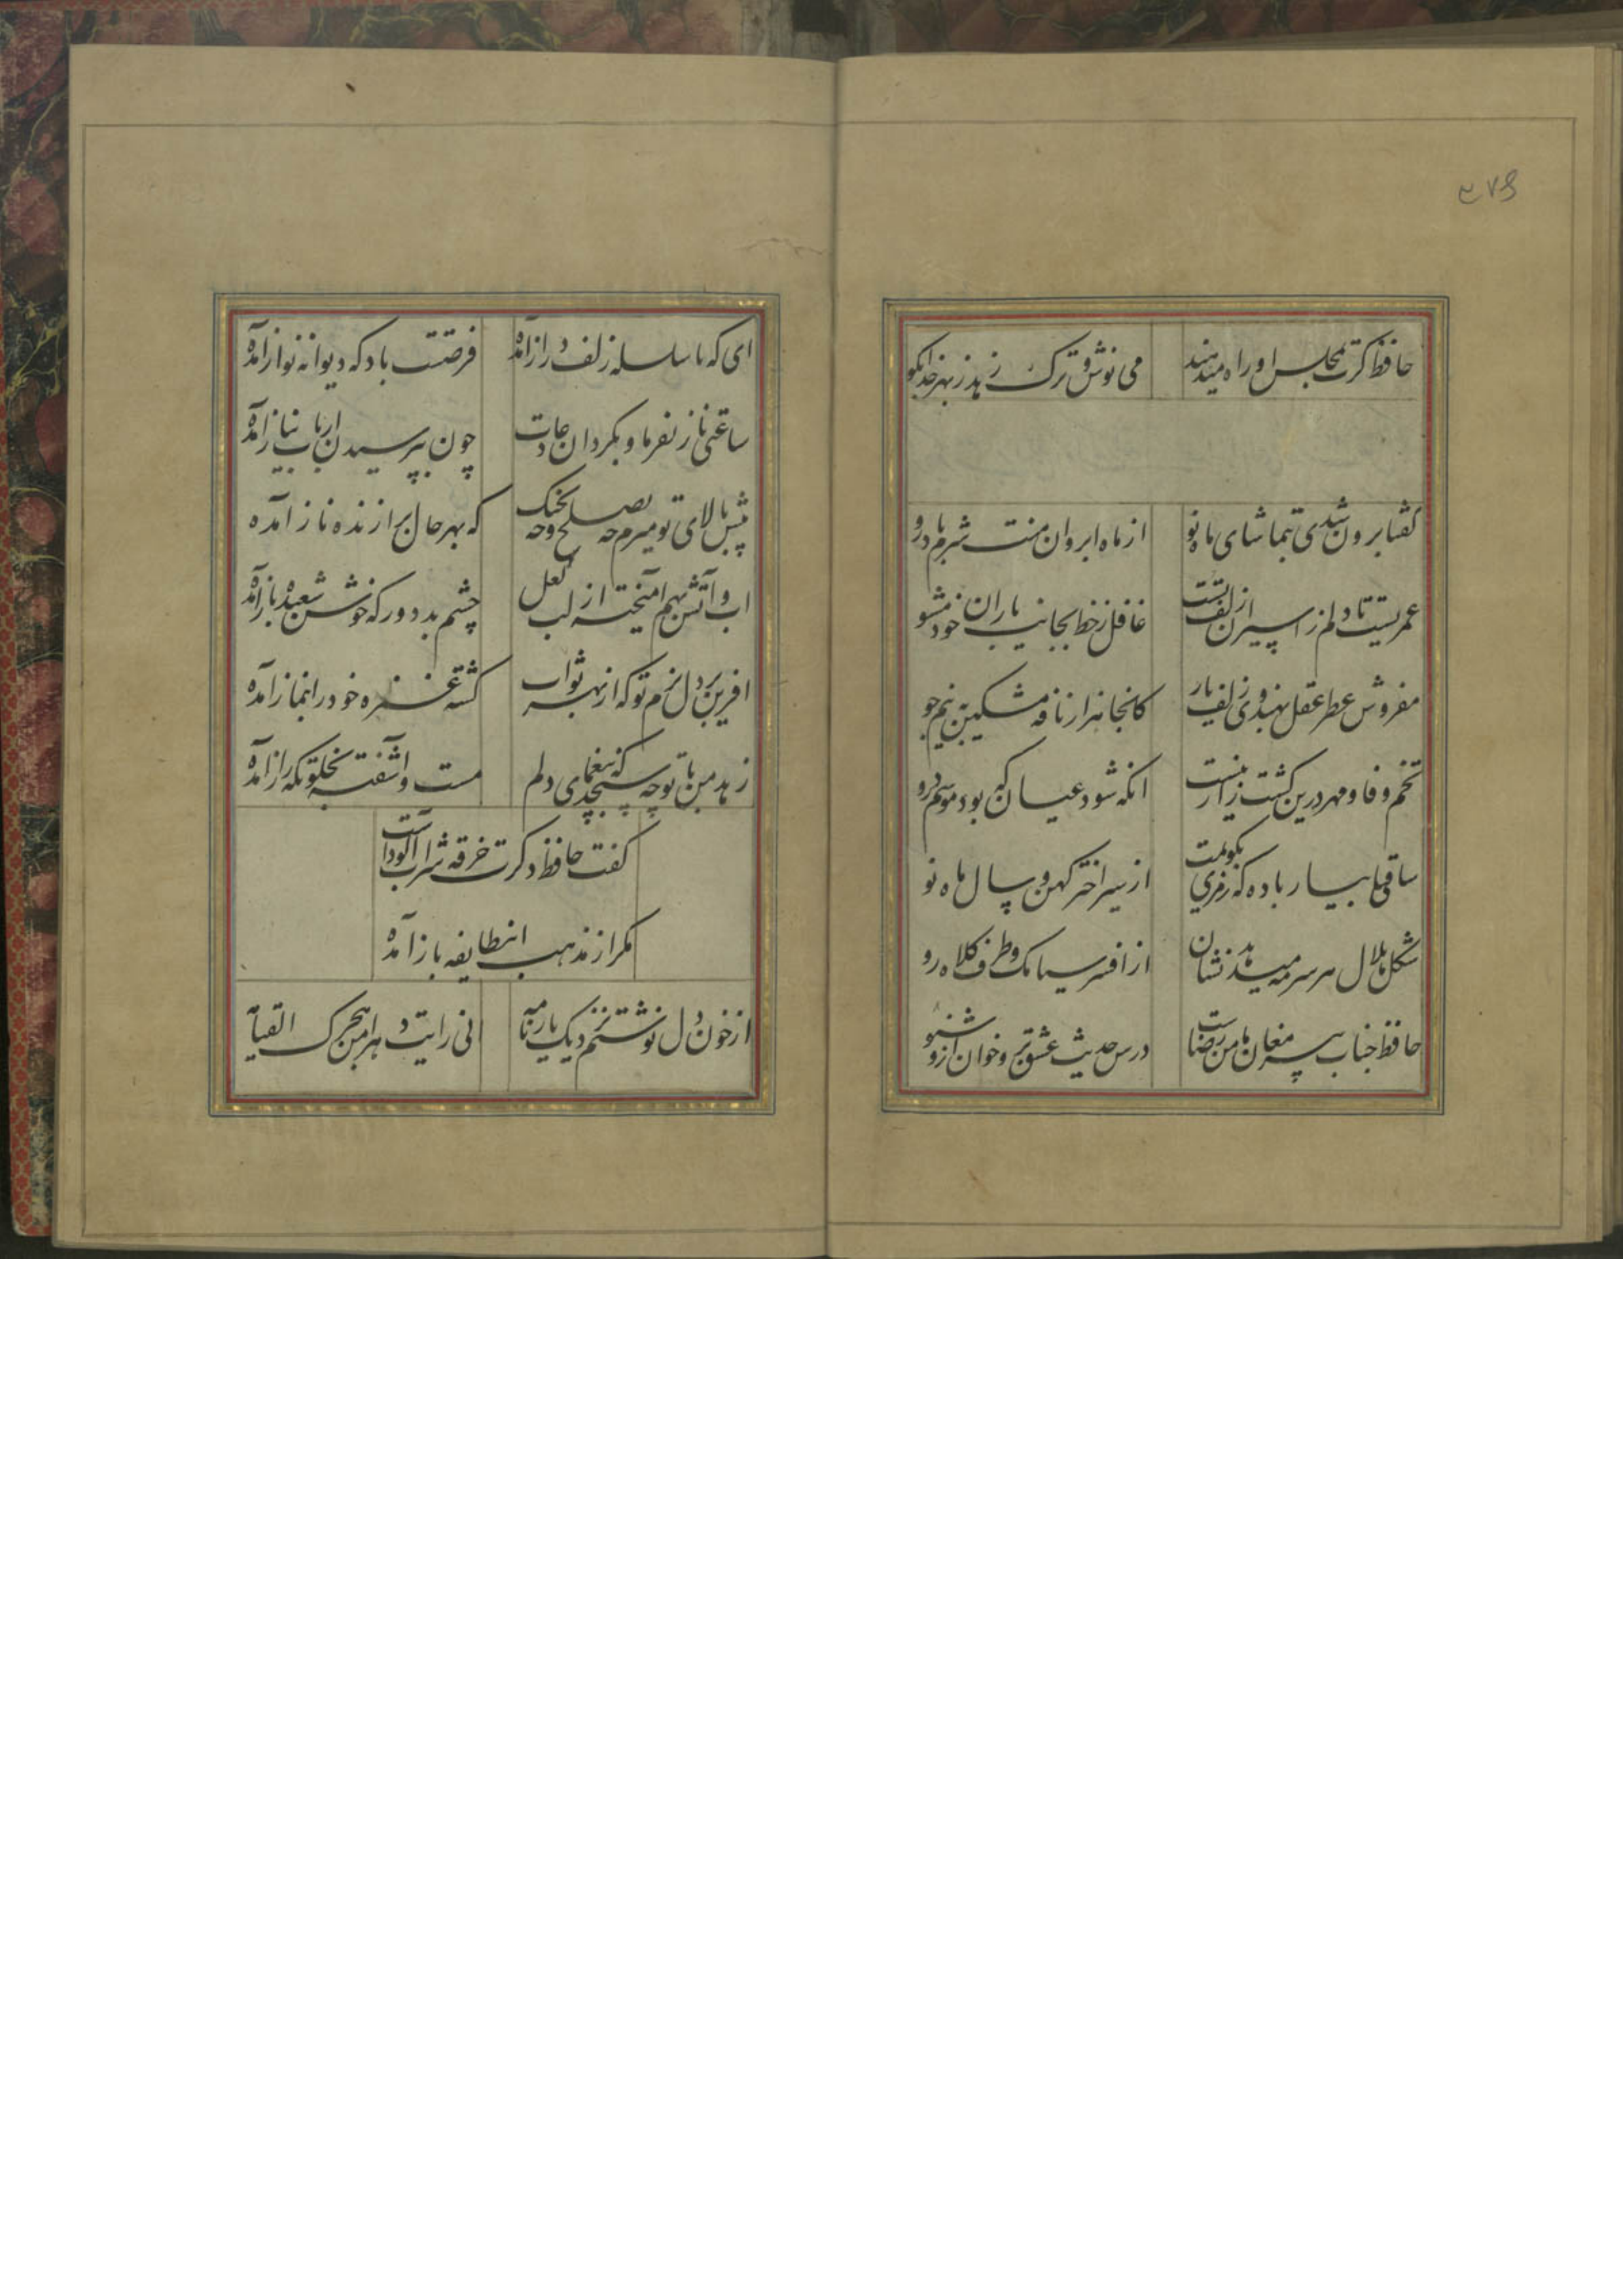 ۲۷۶
حافظ گرت بمجلس او راه میدهند می نوش و ترک زهد ز بهر خدا بگو
گفتا برون شدی بتماشای ماه نو از ماه ابروان منت شرم باد رو
عمریست تا دلم ز اسیران زلف تست غافل ز حفظ جانب یاران خود مشو
مفروش عطر عقل بهندوی زلف یار کانجا هزار نافه مشکین به نیم جو
تخم وفا و مهر درین کشت زار نیست انگه شود عیان که بود موسم درو
ساقی بیار باده که رمزی بگویمت از سیر اختر کهن و سال ماه نو
شکل هلال هر سر مه میدهد نشان از افسر سیامک و طرف کلاه رو
حافظ جناب پیر مغان مامن رضاست درس حدیث عشق برو خوان ازو شنو
ای که با سلسله زلف دراز آمده فرصتت باد که دیوانه نواز آمده
ساعتی ناز نفرما و بگردان عادت چون بپرسیدن ارباب نیاز آمده
پیش بالای تو میرم چه بصلح و چه بجنک که بهر حال برازنده ناز آمده
اب و آتش بهم آمیخته از لب لعل چشم بد دور که خوش شعبده باز آمده
افرین بر دل نرم تو که از بهر ثواب کشته غمزه خود را بنماز آمده
زهد من با تو چه سنجد که بیغمای دلم مست و اشفته بخلوتگه راز آمده
گفت حافظ دگرت خرقه شراب آلودست
مگر از مذهب اینطایفه باز آمده
از خون دل نوشتم نزدیک یار نامه انی رایت دهرا من هجرک القیامه